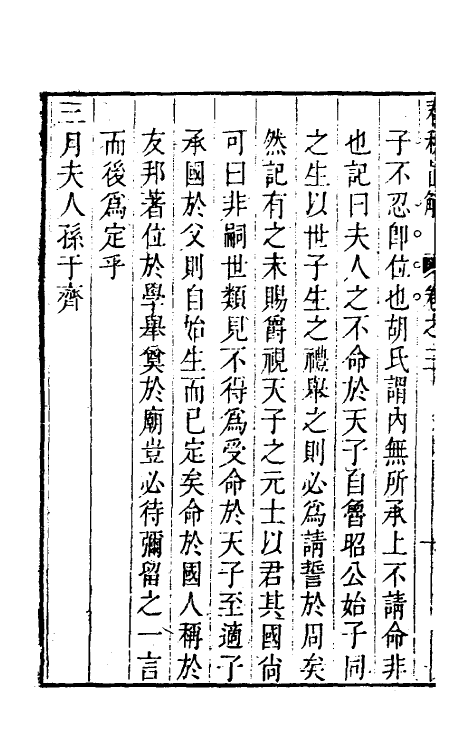 春秋直解　卷之三
子不忍卽位也胡氏謂內無所承上不請命非
也記曰夫人之不命於天子自魯昭公始子同
之生以世子生之禮舉之則必爲請誓於周矣
然記有之未賜爵視天子之元士以君其國尙
可曰非嗣世類見不得爲受命於天子至適子
承國於父則自始生而已定矣命於國人稱於
友邦著位於學舉奠於廟豈必待彌留之一言
而後爲定乎
三月夫人孫于齊